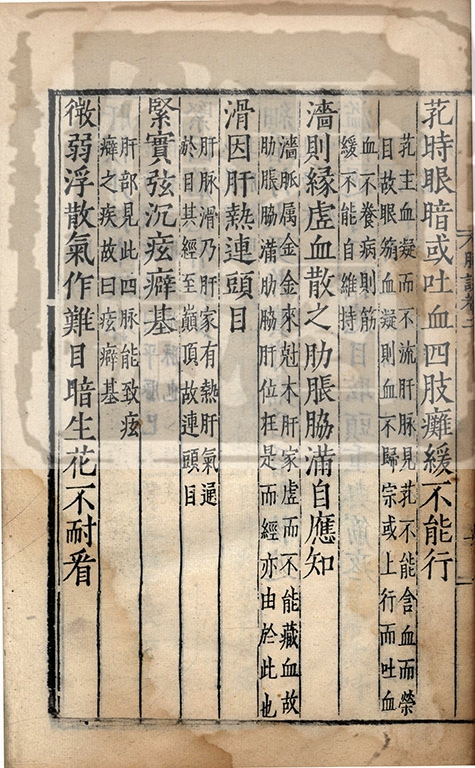 芤時眼暗或吐血四肢癱緩不能行
芤主血凝而不流肝脉見芤不能含血而榮
目故眼㿏血凝則血不歸宗或上行而吐血
血不養病則筋
緩不能自維持
濇則縁虚血散之肋脹脇滿自應知
濇脉属金金來尅木肝家虚而不能藏血故
肋脹脇滿肋脇肝位在是而經亦由於此也
滑因肝熱連頭目
肝脉滑乃肝家有熱肝氣通
於目其經至巔頂故連頭目
緊實弦沉痃癖基
肝部見此四脉能致痃
癖之疾故曰痃癖基
微弱浮散氣作難目暗生花不耐看